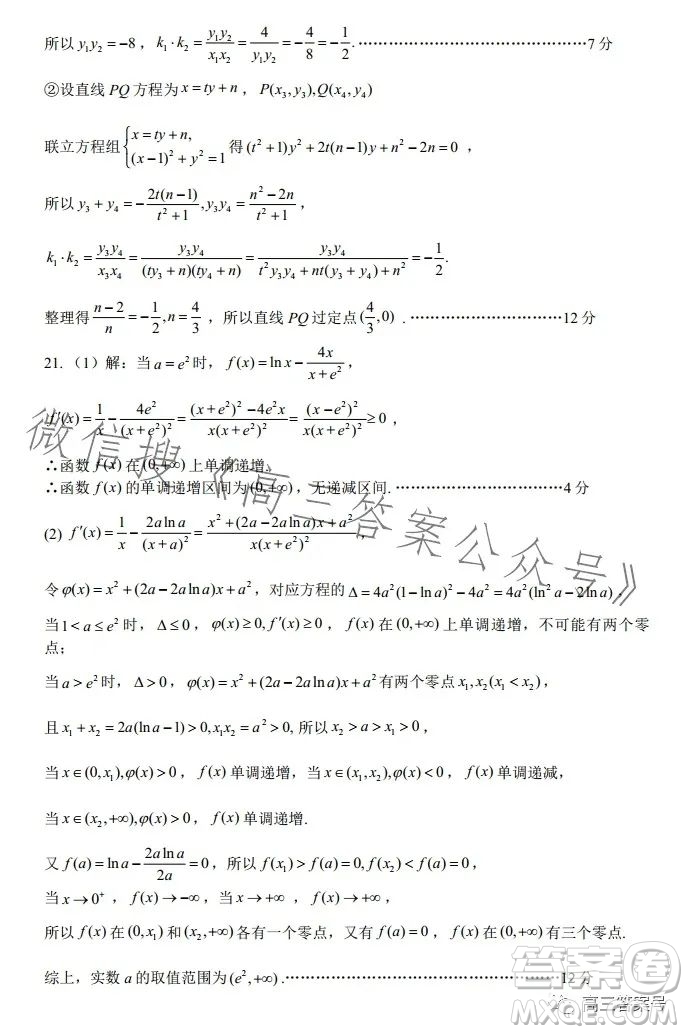 所以 y₁y₂ = −8，k₁·k₂ = y₁y₂/(x₁x₂) = 4/(y₁y₂) = −4/8 = −1/2. ……………………………………7 分
②设直线 PQ 方程为 x = ty + n，P(x₃, y₃), Q(x₄, y₄)
联立方程组 {x = ty + n, (x−1)² + y² = 1 得 (t² +1)y² + 2t(n−1)y + n² − 2n = 0 ，
所以 y₃ + y₄ = −2t(n−1)/(t² +1), y₃y₄ = (n² − 2n)/(t² +1)，
k₁·k₂ = y₃y₄/(x₃x₄) = y₃y₄/((ty₃ + n)(ty₄ + n)) = y₃y₄/(t²y₃y₄ + nt(y₃ + y₄) + n²) = −1/2.
整理得 (n−2)/n = −1/2, n = 4/3 ，所以直线 PQ 过定点 (4/3, 0) . …………………………12 分
21.（1）解：当 a = e² 时，f(x) = ln x − 4x/(x + e²)，
f′(x) = 1/x − 4e²/(x + e²)² = ((x + e²)² − 4e²x)/(x(x + e²)²) = (x − e²)²/(x(x + e²)²) ≥ 0 ，
∴函数 f(x) 在 (0,+∞) 上单调递增，
∴函数 f(x) 的单调递增区间为 (0,+∞)，无递减区间. ……………………………4 分
(2) f′(x) = 1/x − 2a ln a/(x + a)² = (x² + (2a − 2a ln a)x + a²)/(x(x + e²)²)，
令 φ(x) = x² + (2a − 2a ln a)x + a²，对应方程的 Δ = 4a²(1 − ln a)² − 4a² = 4a²(ln² a − 2 ln a)，
当 1 < a ≤ e² 时，Δ ≤ 0，φ(x) ≥ 0, f′(x) ≥ 0，f(x) 在 (0,+∞) 上单调递增，不可能有两个零
点；
当 a > e² 时，Δ > 0，φ(x) = x² + (2a − 2a ln a)x + a² 有两个零点 x₁, x₂(x₁ < x₂)，
且 x₁ + x₂ = 2a(ln a −1) > 0, x₁x₂ = a² > 0, 所以 x₂ > a > x₁ > 0，
当 x ∈ (0, x₁), φ(x) > 0，f(x) 单调递增，当 x ∈ (x₁, x₂), φ(x) < 0，f(x) 单调递减，
当 x ∈ (x₂,+∞), φ(x) > 0，f(x) 单调递增.
又 f(a) = ln a − 2a ln a/2a = 0，所以 f(x₁) > f(a) = 0, f(x₂) < f(a) = 0，
当 x → 0⁺ ，f(x) → −∞，当 x → +∞ ，f(x) → +∞，
所以 f(x) 在 (0, x₁) 和 (x₂,+∞) 各有一个零点，又有 f(a) = 0，f(x) 在有三个零点.
综上，实数 a 的取值范围为 (e²,+∞) .………………………………………12 分
微信搜《高三答案公众号》
答案卷
高三答案号